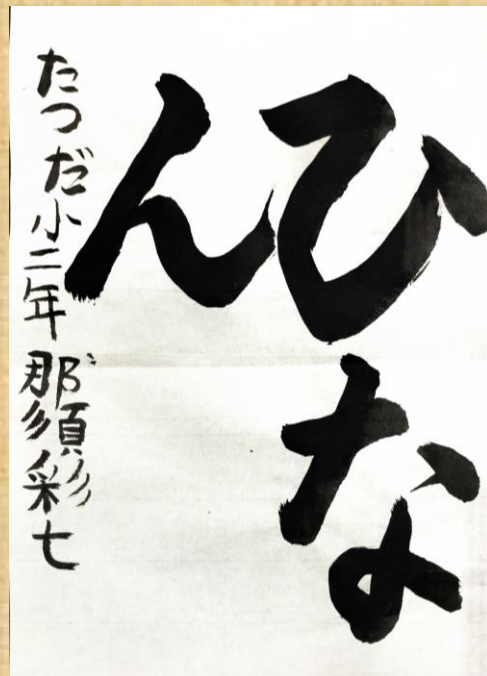 ひな
ん
たつだ小二年 那須彩七